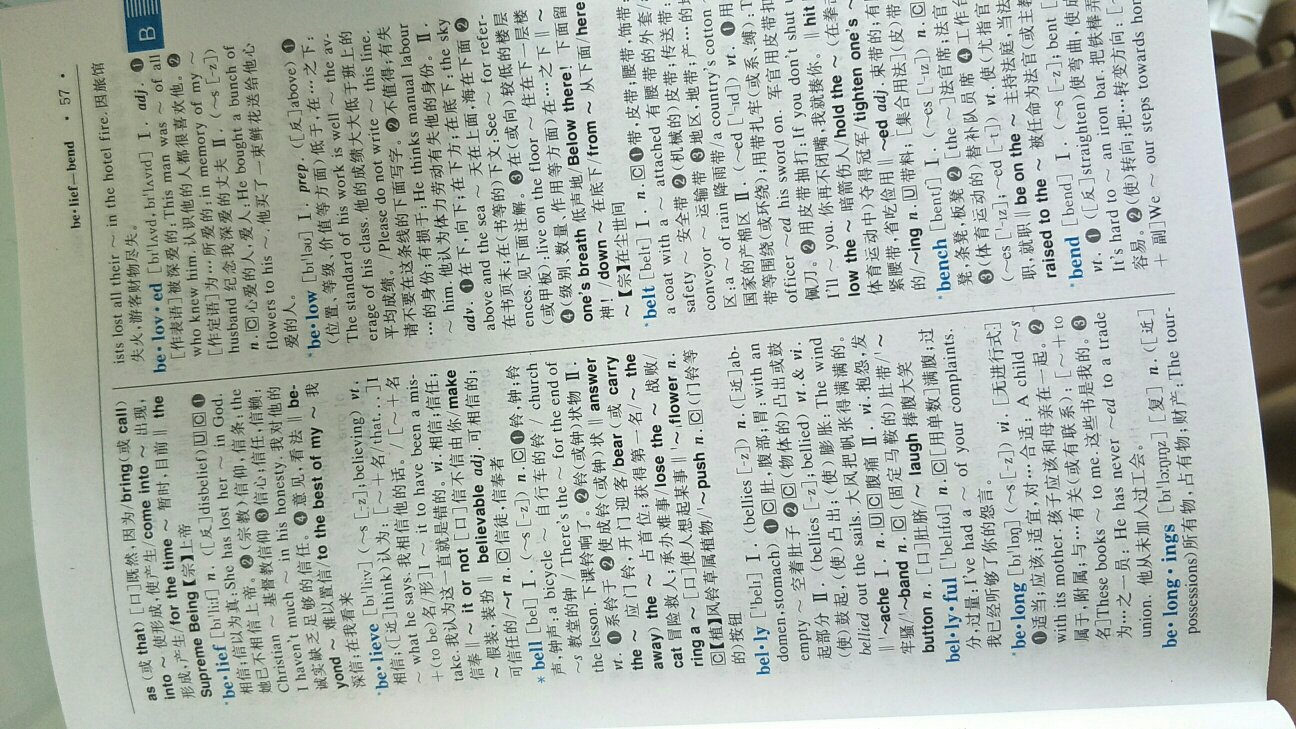 be·lief—bend · 57 ·
B
as (或 that) [口]既然,因为/bring(或 call)
into ～ 使形成,使产生/come into ～ 出现,
形成,产生/for the time ～ 暂时,目前 ‖ the
Supreme Being【宗】上帝
*be·lief [bɪˈliːf] n. ([反]disbelief) Ⓤ Ⓒ ❶
相信;信以为真:She has lost her ～ in God.
她已不相信上帝。❷(宗教)信仰,信条:the
Christian ～ 基督教信仰 ❸信心;信任,信赖:
I haven't much ～ in his honesty. 我对他的
诚实缺乏足够的信任。❹意见,看法 ‖ be-
yond ～ 难以置信/to the best of my ～ 我
深信;在我看来
*be·lieve [bɪˈliːv] (～s [-z];believing) vt.
相信;([近]think)认为:[～+名/that.]I
～ what he says. 我相信他的话。/[～+名
+(to be)名、形]I ～ it to have been a mis-
take. 我认为这一直就是错的。vi. 相信;信任;
信奉 ‖ ～ it or not [口]信不信由你/make
～ 假装,装扮 ‖ believable adj. 可相信的;
可信任的/～r n. Ⓒ信徒,信奉者
*bell [bel] Ⅰ. (～s [-z]) n. Ⓒ ❶铃,钟;铃
声,钟声:a bicycle ～ 自行车的铃/church
～s 教堂的钟/There's the ～ for the end of
the lesson. 下课铃响了。❷铃(或钟)状物 Ⅱ.
vt. ❶系铃于 ❷使成铃(或钟)状 ‖ answer
the ～ 应门铃,开门迎客/bear(或 carry
away) the ～ 占首位;获得第一名/～ the
cat 冒险救人;承办难事/lose the ～ 战败/
ring a ～ [口]使人想起某事 ‖ ～ flower n.
Ⓒ【植】风铃草属植物/～push n. Ⓒ (门铃等
的)按钮
bel·ly [ˈbelɪ] Ⅰ. (bellies [-z]) n. ([近]ab-
domen,stomach) ❶ Ⓒ肚,腹部;胃:with an
empty ～ 空着肚子 ❷ Ⓒ(物体的)凸出或鼓
起部分 Ⅱ. (bellies [-z];bellied) vt. & vi.
(使)鼓起;(使)凸出;(使)膨胀:The wind
bellied out the sails. 大风把帆张得满满的。
‖ ～ache Ⅰ. n. Ⓤ Ⓒ腹痛 Ⅱ. vi. 抱怨,发
牢骚/～band n. Ⓒ(固定马鞍的)肚带/～
button n. [口]肚脐/～ laugh 捧腹大笑
bel·ly·ful [ˈbelɪfʊl] n. Ⓒ[用单数]满腹;过
分,过量:I've had a ～ of your complaints.
我已经听够了你的怨言。
*be·long [bɪˈlɒŋ] (～s [-z]) vi. [无进行式]
❶适当;应该;适宜,对…合适:A child ～s
with its mother. 孩子应该和母亲在一起。❷
属于,附属;与…有关(或有联系):[～+to
名]These books ～ to me. 这些书是我的。❸
为…之一员:He has never ～ed to a trade
union. 他从未加入过工会。
be·long·ings [bɪˈlɒŋɪŋz] [复] n. ([近]
possessions)所有物,占有物;财产:The tour-
ists lost all their ～ in the hotel fire. 因旅馆
失火,游客财物尽失。
be·lov·ed [bɪˈlʌvd, bɪˈlʌvɪd] Ⅰ. adj. ❶
[作表语]被深爱的:This man was ～ of all
who knew him. 认识他的人都很喜欢他。❷
[作定语]为…所爱的:in memory of my ～
husband 纪念我深爱的丈夫 Ⅱ. (～s [-z])
n. Ⓒ心爱的人,爱人:He bought a bunch of
flowers to his ～. 他买了一束鲜花送给他心
爱的人。
*be·low [bɪˈləʊ] Ⅰ. prep. ([反]above) ❶
(位置、等级、价值等方面)低于,在…之下:
The standard of his work is well ～ the av-
erage of his class. 他的成绩大大低于班上的
平均成绩。/Please do not write ～ this line.
请不要在这条线的下面写字。❷不值得;有失
…的身份;有损于:He thinks manual labour
～ him. 他认为体力劳动有失他的身份。Ⅱ.
adv. ❶在下,向下;在下方;在底下:the sky
above and the sea ～ 天在上面,海在下面 ❷
在书页末;在(书等的)下文:See ～ for refer-
ences. 见下面注解。❸在(或向)较低的楼层
(或甲板):live on the floor ～ 住在下一层楼
❹(级别、数量、作用等方面)在…之下 ‖ ～
one's breath 低声地/Below there! 下面留
神!/down ～ 在底下/from ～ 从下面/here
～【宗】在尘世间
*belt [belt] Ⅰ. n. Ⓒ ❶带,皮带;腰带,饰带:
a coat with a ～ attached 有腰带的外套/
safety ～ 安全带 ❷机械的)皮带;传送带:a
conveyor ～ 运输带 ❸地区,地带;产…的地
区:a ～ of rain 降雨带/a country's cotton ～
国家的产棉区 Ⅱ. (～ed [ˈɪd]) vt. ❶用
带等围绕(或环绕);用带扎牢(或系、缚):The
officer ～ed his sword on. 军官用皮带扣
佩刀。❷用皮带抽打:If you don't shut up
I'll ～ you. 你再不闭嘴,我就揍你。‖ hit
low the ～ 暗箭伤人/hold the ～ (在拳击
体育运动中)夺得冠军/tighten one's ～
紧腰带,省吃俭用 ‖ ～ed adj. 束带的;有
的/～ing n. Ⓤ 带料;[集合用法](皮)带
*bench [bentʃ] Ⅰ. (～es [ˈɪz]) n. Ⓒ
凳,条凳,板凳 ❷[the ～]法官席;法官
❸(体育运动的)替补队员席 ❹工作台
(～es [ˈɪz];～ed [-t]) vt. 使(尤指官
职,就职 ‖ be on the ～ 主持法庭,当法
raised to the ～ 被任命为法官(或主教
*bend [bend] Ⅰ. (～s [-z];bent [
vt. ❶([反]straighten)使弯曲,使成
It's hard to ～ an iron bar. 把铁棒弄
容易。❷(使)转向;把…转变方向:[～
+副]We ～ our steps towards hom